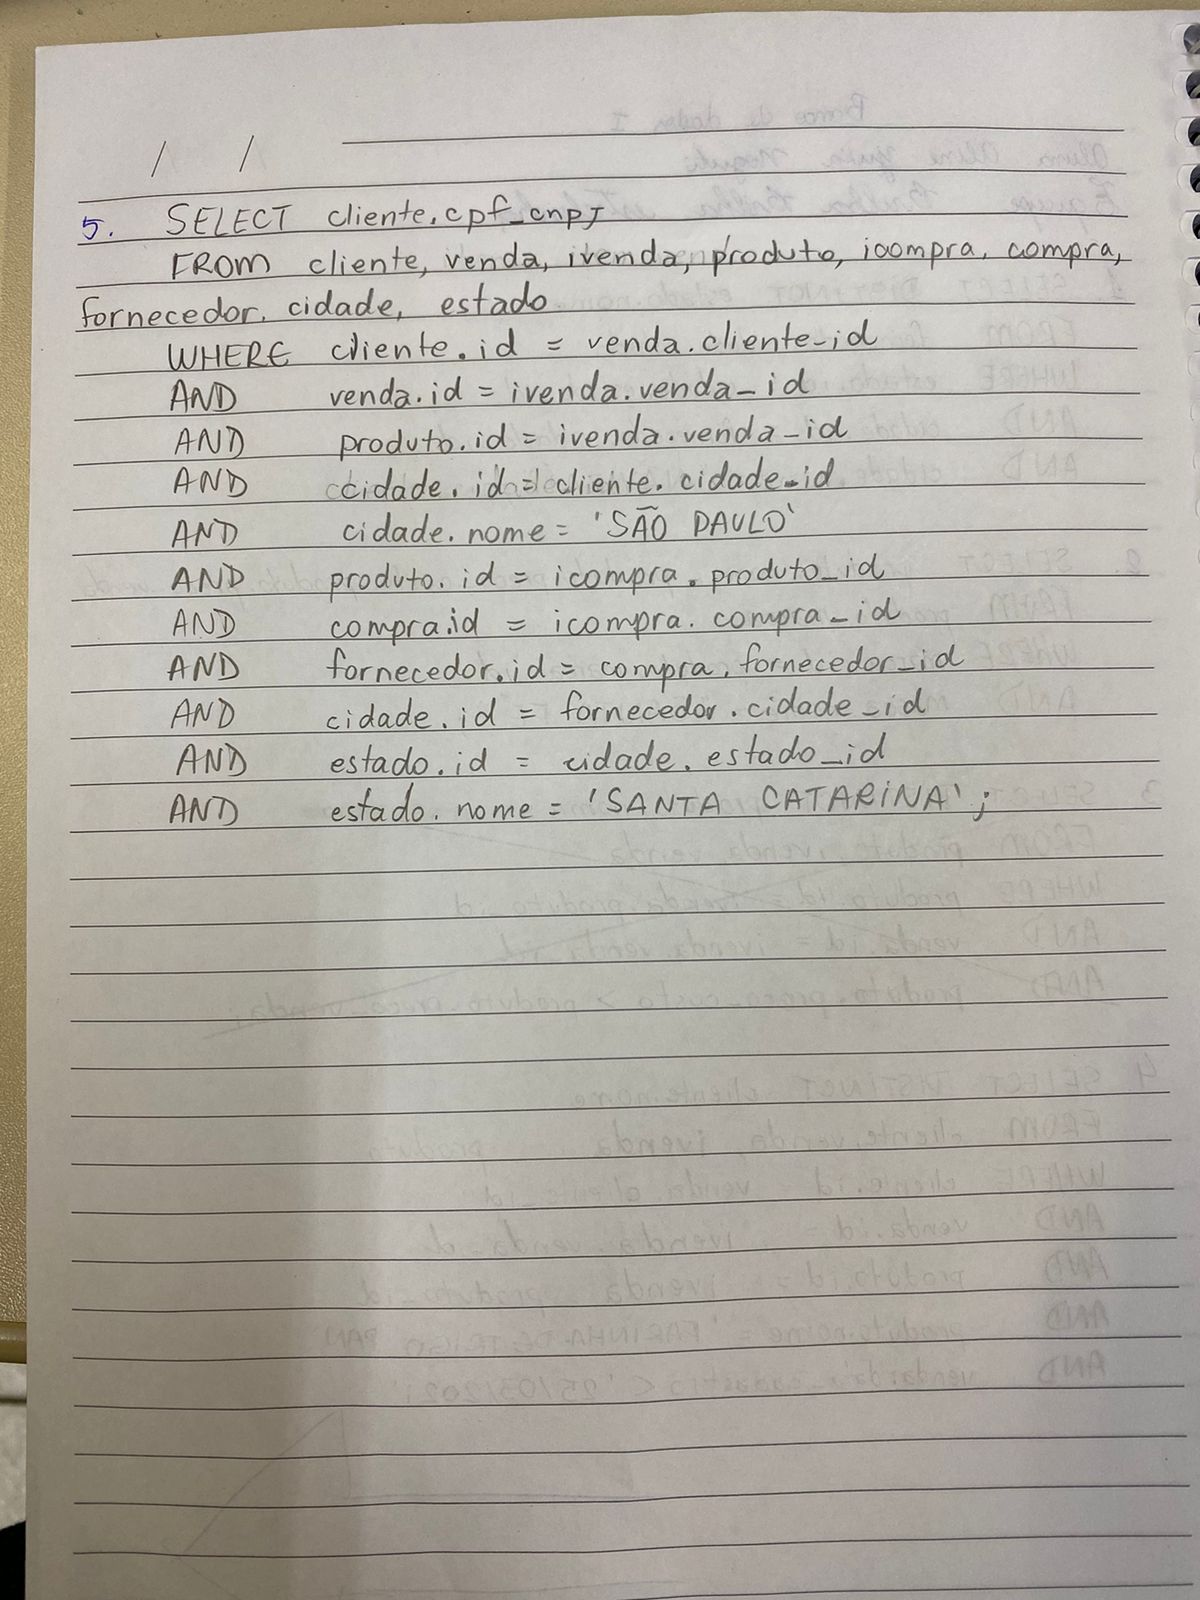 / /
5. SELECT cliente.cpf_cnpj
FROM cliente, venda, ivenda, produto, icompra, compra,
fornecedor, cidade, estado
WHERE cliente.id = venda.cliente_id
AND venda.id = ivenda.venda_id
AND produto.id = ivenda.venda_id
AND cidade.id = cliente.cidade_id
AND cidade.nome = 'SÃO PAULO'
AND produto.id = icompra.produto_id
AND compra.id = icompra.compra_id
AND fornecedor.id = compra.fornecedor_id
AND cidade.id = fornecedor.cidade_id
AND estado.id = cidade.estado_id
AND estado.nome = 'SANTA CATARINA';